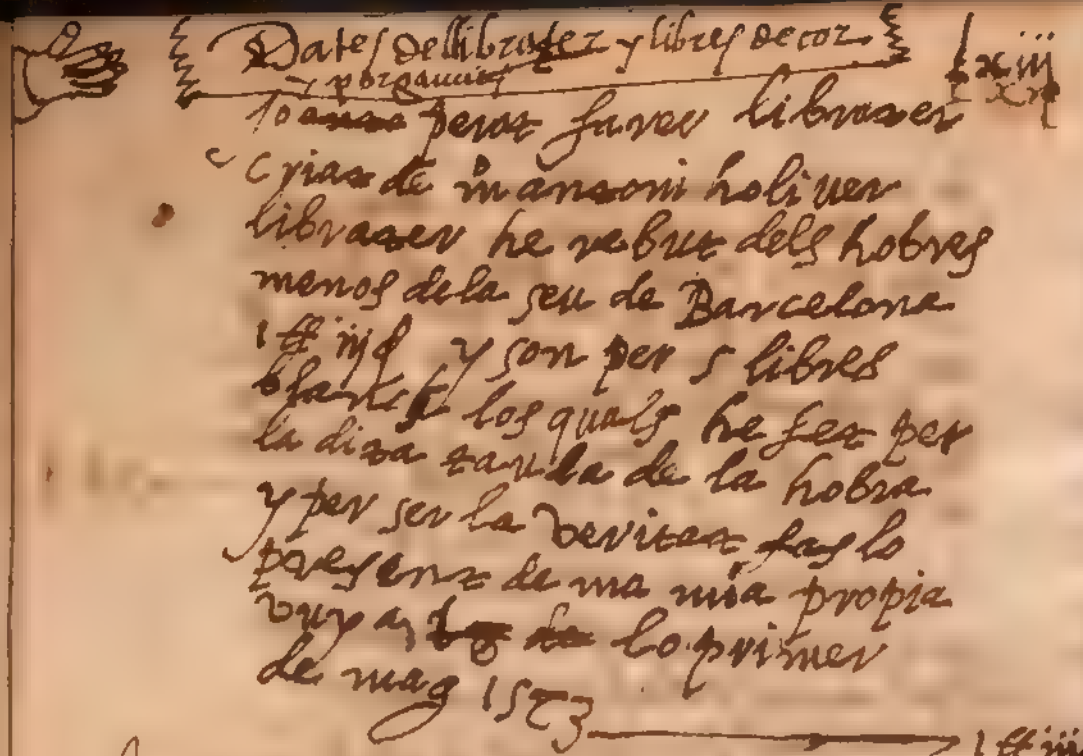 Dates del librater y libres de cor
y porgamins
Jo perot farer librater
criat de mansoni holiver
librater he rebut dels hobres
menos de la seu de Barcelona
1 ₶ iiij ß y son per 5 libres
blanchs los quals he fet per
la dita taula de la hobra
y per ser la veritat fas lo
present de ma mia propia
vuy a lo primer
de mag 1573